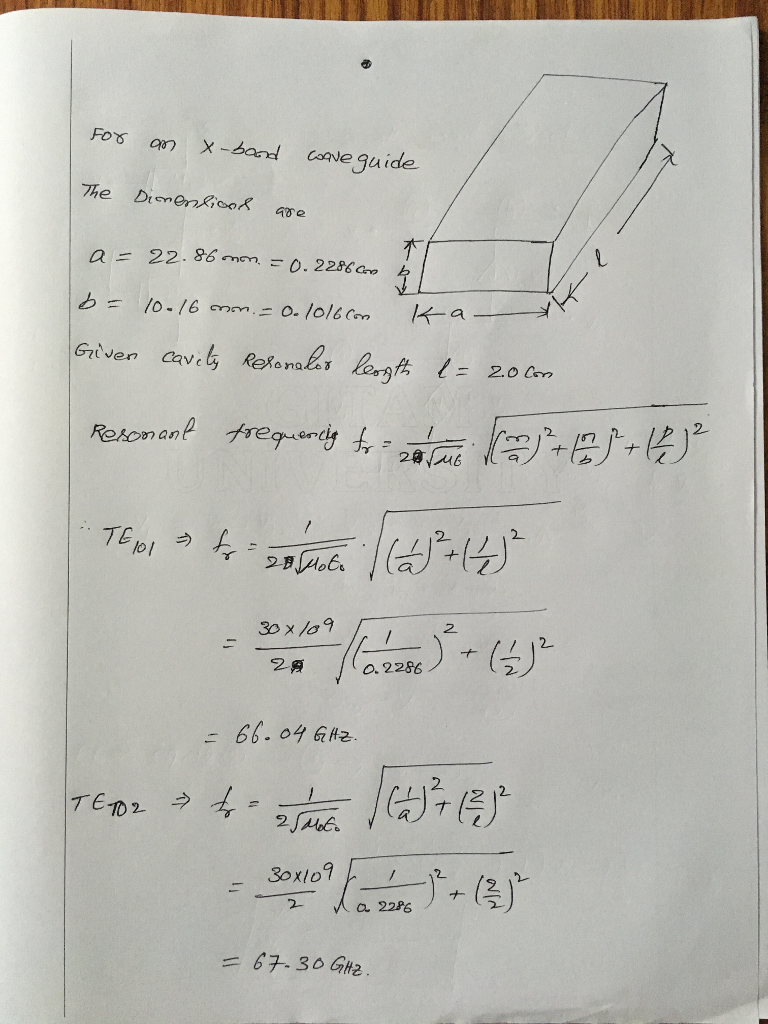 For an X-band waveguide
The Dimensions are
a = 22.86 mm. = 0.2286 cm
b = 10.16 mm. = 0.1016 cm
b
l
a
Given cavity Resonator length l = 2.0 cm
Resonant frequency fr = 1/(2√με) · √((m/a)² + (n/b)² + (p/l)²)
∴ TE101 ⇒ fr = 1/(2√μ0ε0) · √((1/a)² + (1/l)²)
= 30×10⁹/2 √((1/0.2286)² + (1/2)²)
= 66.04 GHz.
TE102 ⇒ fr = 1/(2√μ0ε0) √((1/a)² + (2/l)²)
= 30×10⁹/2 √((1/0.2286)² + (2/2)²)
= 67.30 GHz.